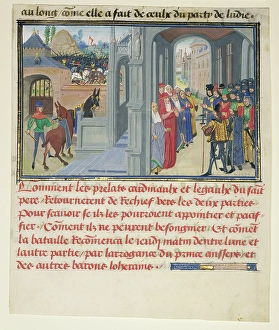 au long come elle a fait de ceulx du party de ludie.
Comment les prelats cardinaulx et legaulx du saint
pere Retournerent de Rechief vers les deux parties
Pour scauoir se ilz les pourroient appointier et paci
fier. Coment ilz ne peurent besongnier. Et comet
la bataille Recomenca le ieudi matin dentre lune et
lautre partie par larrogance du prince anssers et
des autres barons loherains.